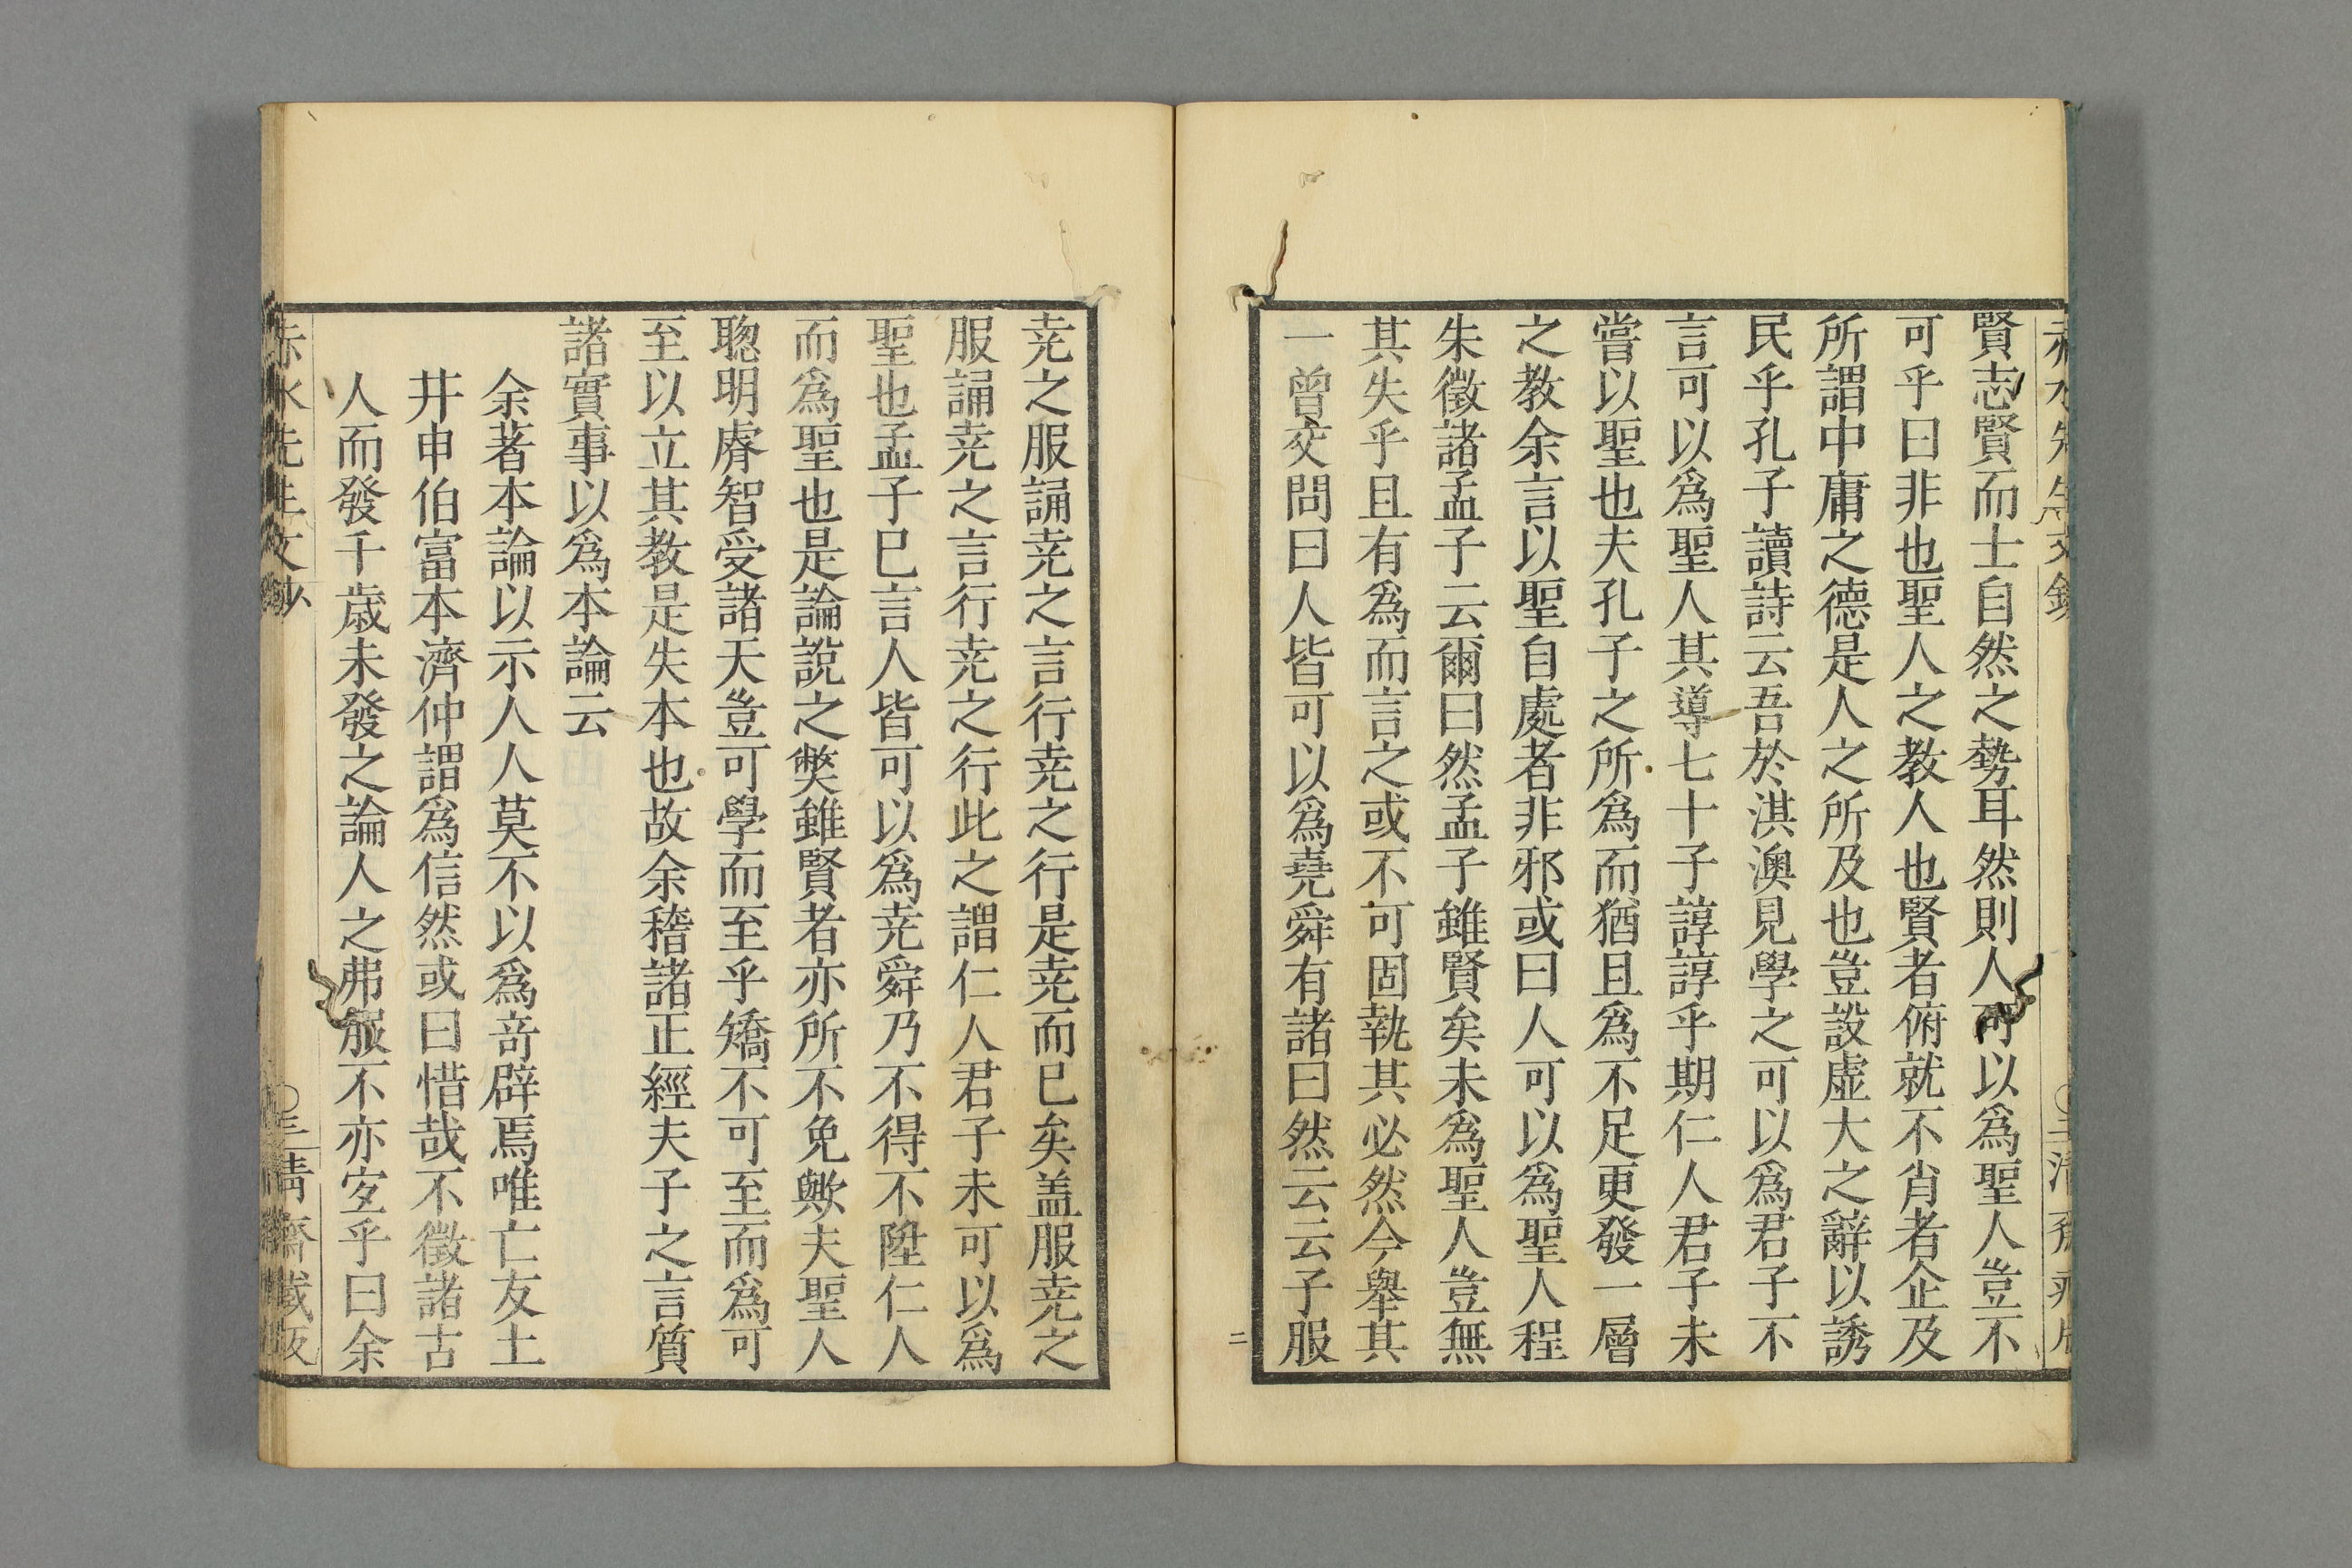 賢志賢而士自然之勢耳然則人可以爲聖人豈不
可乎曰非也聖人之教人也賢者俯就不肖者企及
所謂中庸之德是人之所及也豈設虛大之辭以誘
民乎孔子讀詩云吾於淇澳見學之可以爲君子不
言可以爲聖人其導七十子諄諄乎期仁人君子未
嘗以聖也夫孔子之所爲而猶且爲不足更發一層
之教余言以聖自處者非邪或曰人可以爲聖人程
朱徵諸孟子云爾曰然孟子雖賢矣未爲聖人豈無
其失乎且有爲而言之或不可固執其必然今舉其
一曾交問曰人皆可以爲堯舜有諸曰然云云子服
尭之服誦尭之言行尭之行是尭而已矣盖服尭之
服誦尭之言行尭之行此之謂仁人君子未可以爲
聖也孟子已言人皆可以爲尭舜乃不得不陞仁人
而爲聖也是論說之獘雖賢者亦所不免歟夫聖人
聦明睿智受諸天豈可學而至乎矯不可至而爲可
至以立其教是失本也故余稽諸正經夫子之言質
諸實事以爲本論云
余著本論以示人人莫不以爲奇辟焉唯亡友土
井申伯富本濟仲謂爲信然或曰惜哉不徵諸古
人而發千歲未發之論人之弗服不亦宐乎曰余
赤水先生文鈔 〇三 靜齋藏版